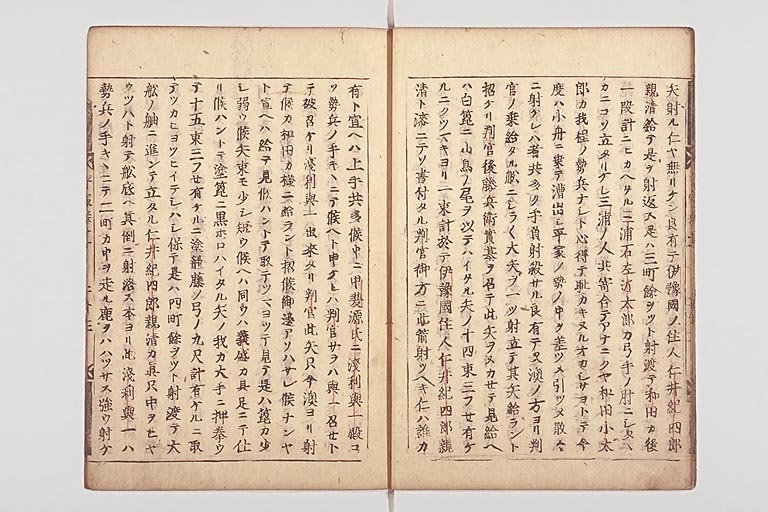 矢射ル仁ヤ無リケン良有テ伊豫國ノ住人仁井紀四郎
親清給テ是ヲ射返ス是ハ三町餘ヲツト射渡テ和田カ後
一段計ニヒカヘタル三浦石左近太郎カ弓手ノ肘ニシタヽ
カニコソ立タリケレ三浦ノ人共寄合テアナニクヤ和田小太
郎カ我程ノ勢兵ナレト心得テ恥カキヌルオカシサヨトテ今
度ハ小舟ニ乗テ漕出シ平家ノ勢ノ中ヲ差ツメ引ツメ散々
ニ射ケレハ者共多ク手負射殺サル良有テ又澳ノ方ヨリ判
官ノ乗給タル舩ニシラ〱大矢ヲ一ツ射立テ其矢給ラント
招ケリ判官後藤兵衛實基ヲ召テ此矢ヲヌカセテ見給ヘ
ハ白箆ニ山鳥ノ尾ヲ以テハイタル矢ノ十四束三フセ有ケ
ルニクツマキヨリ一束計於テ伊豫國住人仁井紀四郎親
清ト漆ニテソ書付タル判官御方ニ此箭射ツヘキ仁ハ誰カ
有ト宣ヘハ上手共多候中ニ甲斐源氏ニ淺利與一殿コ
ソ勢兵ノ手キヽニテ候ヘト申ケレハ判官サラハ與一召セト
テ被召ケリ淺利與一出来タリ判官此矢只今澳ヨリ射
テ候カ和田カ様ニ給ラント招候御邊アソハサレ候ナンヤ
ト宣ヘハ給テ見候ハントテ取テツマヨツテ見テ是ハ箆カ少
シ弱ウ候矢束モ少シ短ウ候ヘハ同ウハ義盛カ具足ニテ仕
リ候ハントテ塗箆ニ黒ホロハイタル矢ノ我カ大手ニ押拳ウ
テ十五束三フセ有ケルニ塗籠籐ノ弓ノ九尺計有ケルニ取
テツカヒヨツヒイテシハシ保テ是ハ四町餘ヲツト射渡テ大
舩ノ舳ニ進ンテ立タル仁井紀四郎親清カ真只中ヲヒヤ
ウツハト射テ舩底ヘ真倒ニ射落ス本ヨリ此淺利與一ハ
勢兵ノ手キヽニテ二町カ中ヲ走ル鹿ヲハハツサス強ウ射ケ